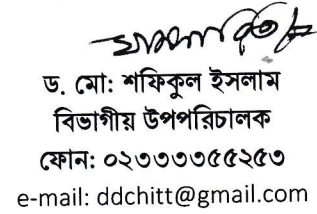 ড. মো: শফিকুল ইসলাম
বিভাগীয় উপপরিচালক
ফোন: ০২৩৩৩৩৫৫২৫৩
e-mail: ddchitt@gmail.com